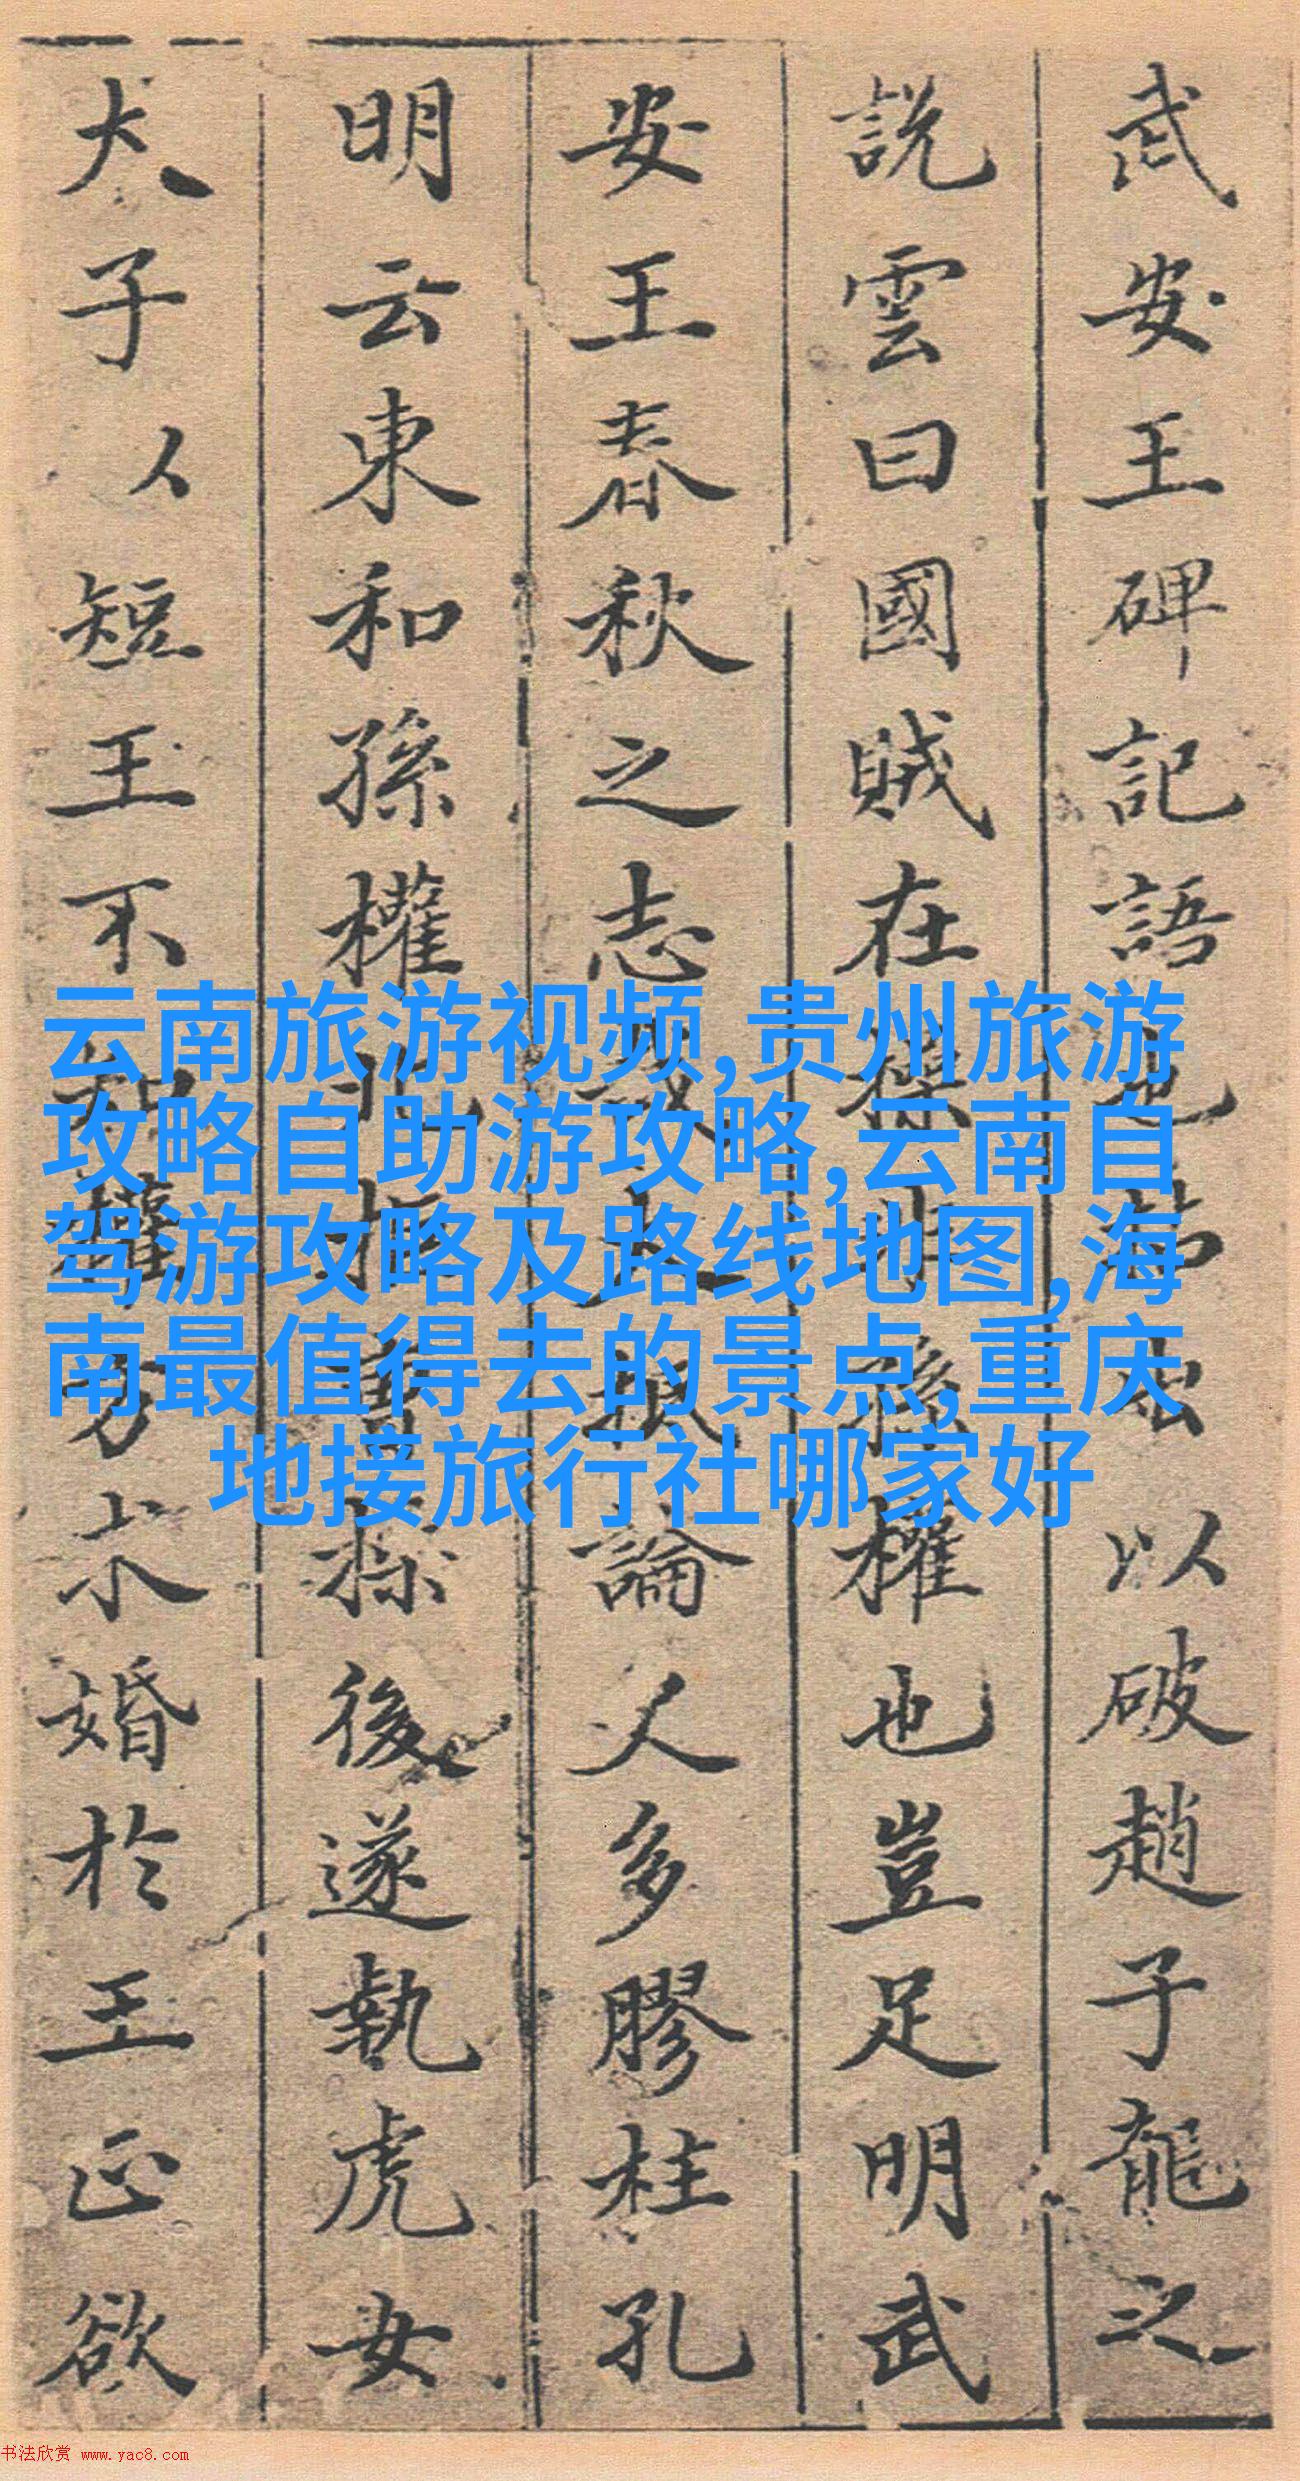 武安王碑記語也苐出以破趙子龍之
說雲曰國賊在操非孫權也豈足明武
安王春秋之志哉大抵論人多膠柱孔
明云東和孫權北拒曹操後遂執虎女
犬子人短王不知權方求婚於王正欲
云南旅游视频,贵州旅游
攻略自助游攻略,云南自
驾游攻略及路线地图,海
南最值得去的景点,重庆
地接旅行社哪家好
书法欣赏 www.yac8.com